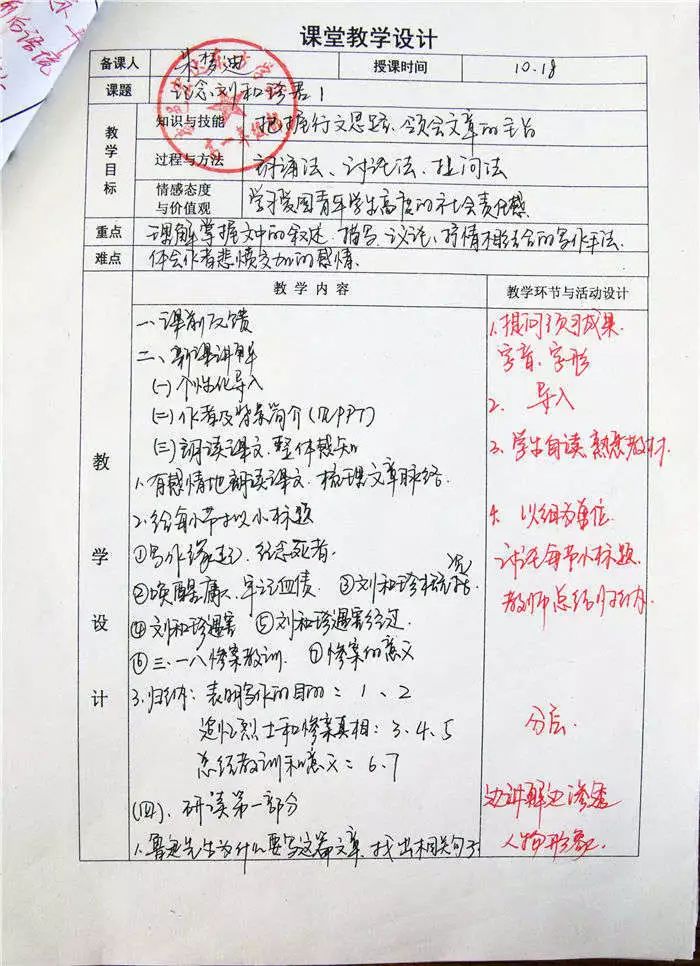 后语境
课堂教学设计
备课人 授课时间 10.18
课题 记念刘和珍君1
教学目标
知识与技能 把握行文思路、领会文章的主旨
过程与方法 诵读法、讨论法、提问法
情感态度与价值观 学习爱国青年学生高度的社会责任感
重点 理解掌握文中的叙述、描写、议论、抒情相结合的写作手法.
难点 体会作者悲愤交加的感情.
教学内容 教学环节与活动设计
教学设计
一、课前反馈
二、新课讲解
(一)个性化导入
(二)作者及背景简介(见PPT)
(三)朗读课文,整体感知
1.有感情地朗读课文,梳理文章脉络.
2.给每小节拟小标题
①写作缘起,纪念死者.
②唤醒庸人,牢记血债 ③刘和珍概况
④刘和珍遇害 ⑤刘和珍遇害经过.
⑥三·一八惨案教训 ⑦惨案的意义
3.归纳:表明写作的目的:1、2
追忆烈士和惨案真相:3.4.5
总结教训和意义:6.7
(四).研读第一部分
1.鲁迅先生为什么要写这篇文章,找出相关句子
1.提问预习成果
字音、字形
2. 导入
3.学生自读,熟悉教材.
4. 以组为单位
讨论每节小标题
教师总结归纳
分层.
边讲解边渗透
人物形象.